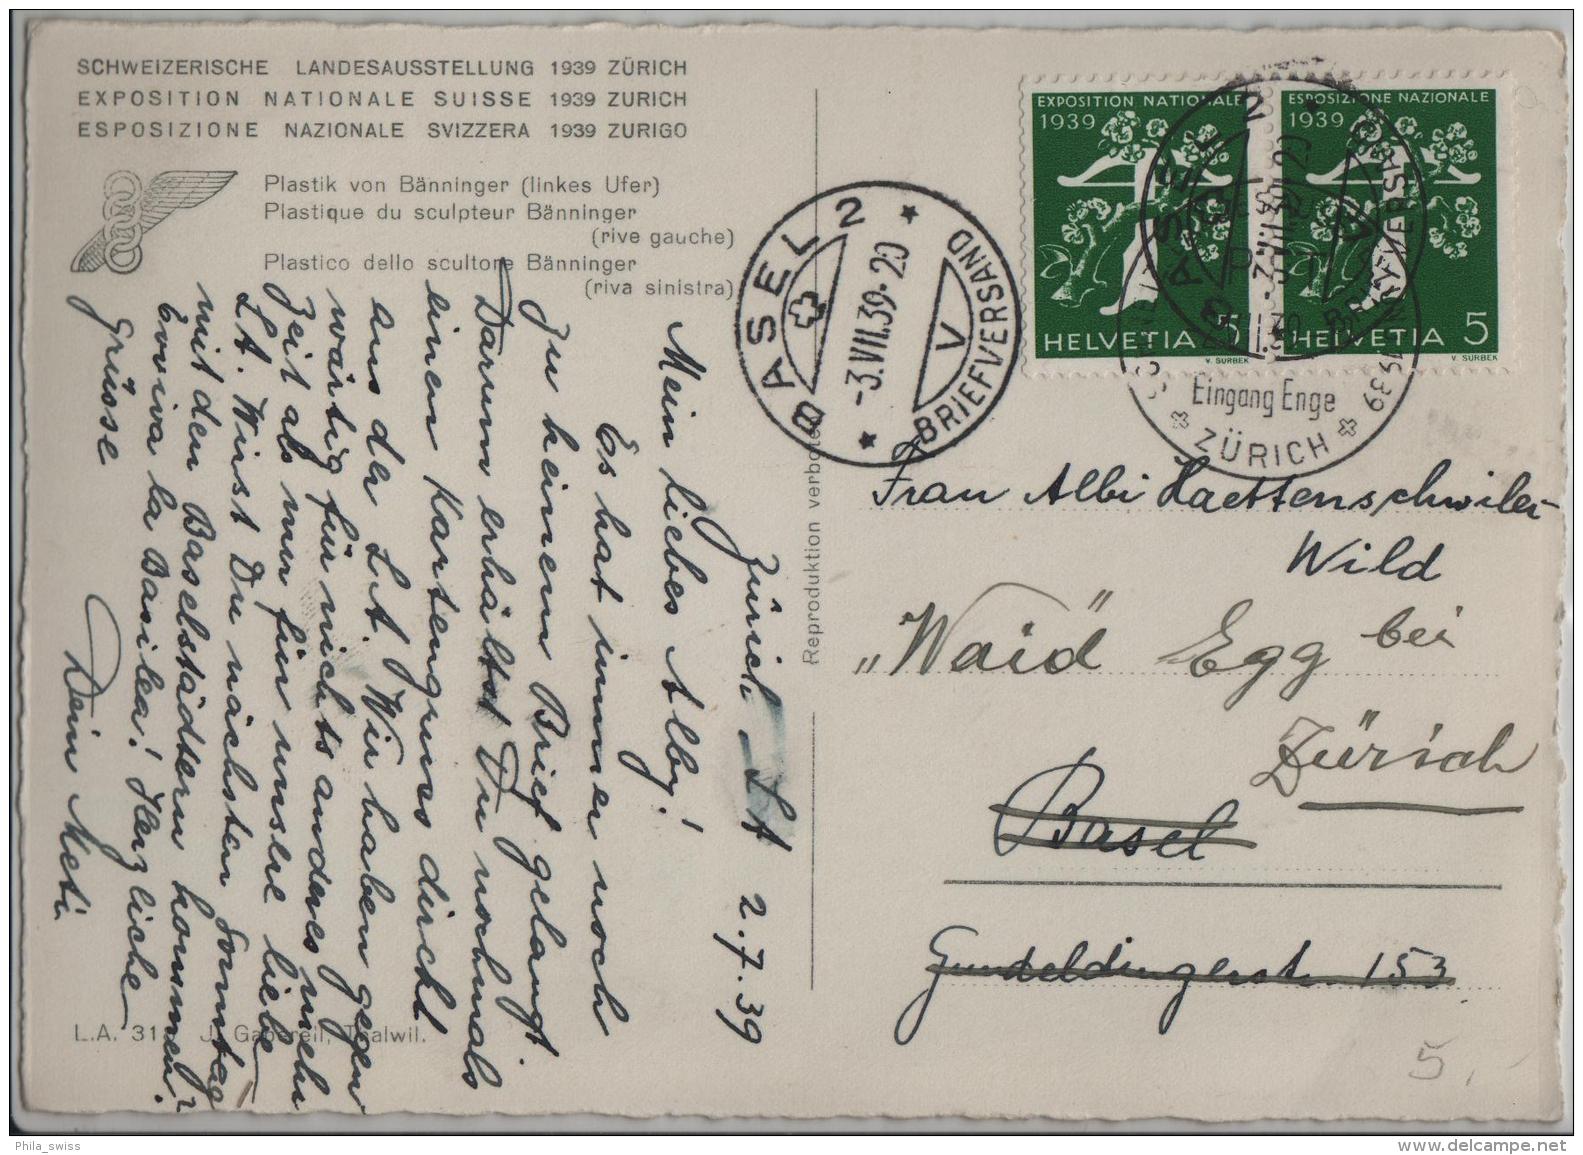 SCHWEIZERISCHE LANDESAUSSTELLUNG 1939 ZÜRICH
EXPOSITION NATIONALE SUISSE 1939 ZURICH
ESPOSIZIONE NAZIONALE SVIZZERA 1939 ZURIGO
Plastik von Bänninger (linkes Ufer)
Plastique du sculpteur Bänninger
(rive gauche)
Plastico dello scultore Bänninger
(riva sinistra)
Zürich 2.7.39
Mein liebes Alby!
Es hat immer noch
zu keinem Brief gelangt.
Darum erhältst Du nochmals
einen Kartengruss direkt
aus der LA. Wir haben gegen
wärtig für nichts anderes mehr
Zeit als nur für unsere liebe
LA. Wirst Du nächsten Sonntag
mit den Baselstädtern kommen?
Evviva la Basilea! Herzliche
Grüsse
Dein Meti
L.A. 31 J. Gaberell, Thalwil.
Reproduktion verboten
BASEL 2
-3.VII.39-20
V
BRIEFVERSAND
EXPOSITION NATIONALE
1939
HELVETIA 5
V. SURBEK
ESPOSIZIONE NAZIONALE
1939
HELVETIA 5
V. SURBEK
BASEL 2
-3.VII.39-20
V
BRIEFVERSAND
1939
Eingang Enge
ZÜRICH
Frau Albi Haettenschwiler
Wild
„Waid" Egg bei
Zürich
Basel
Gundeldingerstr. 153
5.-
Phila_swiss
www.delcampe.net